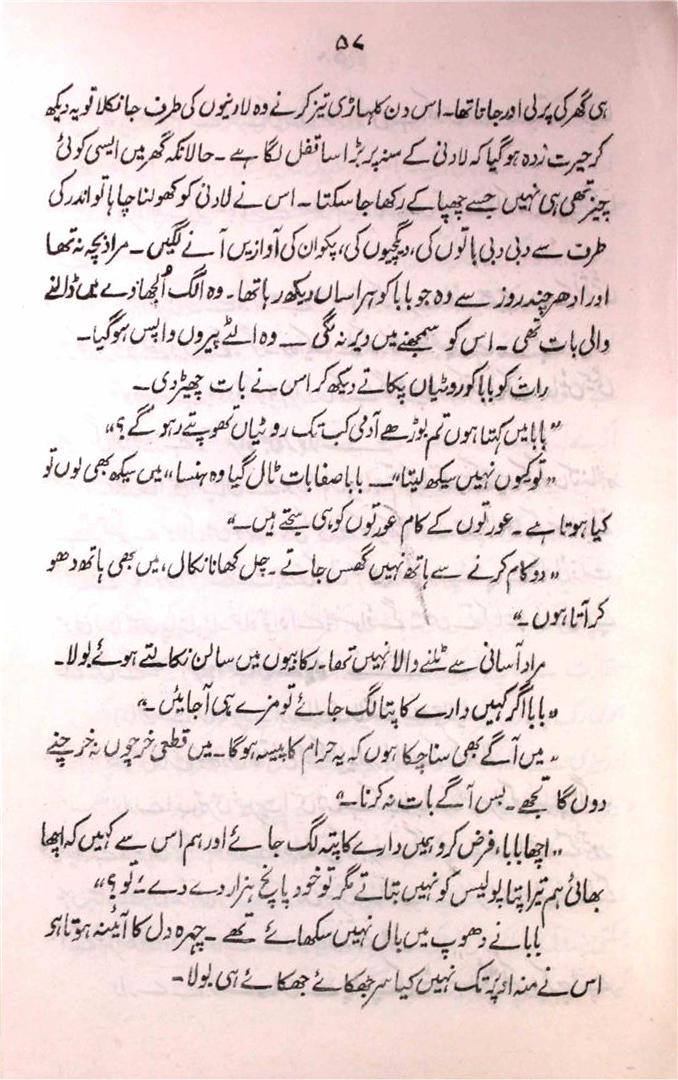 ۵۷
ہی گھر کی پرلی اور جاتا تھا۔ اس دن کلہاڑی تیز کرنے وہ لادنیوں کی طرف جا نکلا تو یہ دیکھ
کر حیرت زدہ ہو گیا کہ لادنی کے منہ پر بڑا سا قفل لگا ہے۔ حالانکہ گھر میں ایسی کوئی
چیز تھی ہی نہیں جسے چھپا کے رکھا جا سکتا۔ اس نے لادنی کو کھولنا چاہا تو اندر کی
طرف سے دبی دبی باتوں کی، دیگچیوں کی، پکوان کی آوازیں آنے لگیں۔ مراد بچہ نہ تھا
اور ادھر چند روز سے وہ جو بابا کو ہراساں دیکھ رہا تھا۔ وہ الگ اُلجھاوے میں ڈالنے
والی بات تھی۔ اس کو سمجھنے میں دیر نہ لگی — وہ الٹے پیروں واپس ہو گیا۔
رات کو بابا کو روٹیاں پکاتے دیکھ کر اس نے بات چھیڑ دی۔
"بابا میں کہتا ہوں تم بوڑھے آدمی کب تک روٹیاں تھوپتے رہو گے؟"
"تو کیوں نہیں سیکھ لیتا"— بابا صفا بات ٹال گیا وہ ہنسا "میں سیکھ بھی لوں تو
کیا ہوتا ہے۔ عورتوں کے کام عورتوں کو ہی سجتے ہیں۔"
"دو کام کرنے سے ہاتھ نہیں گھس جاتے۔ چل کھانا نکال، میں بھی ہاتھ دھو
کر آتا ہوں۔"
مراد آسانی سے ٹلنے والا نہیں تھا۔ رکابیوں میں سالن نکالتے ہوئے بولا۔
"بابا اگر کہیں دارے کا پتا لگ جائے تو مزے ہی آ جائیں۔"
"میں آگے بھی سنا چکا ہوں کہ یہ حرام کا پیسہ ہوگا۔ میں قطعی خرچوں نہ خرچنے
دوں گا تجھے۔ بس آگے بات نہ کرنا۔"
"اچھا بابا، فرض کرو ہمیں دارے کا پتہ لگ جائے اور ہم اس سے کہیں کہ اچھا
بھائی ہم تیرا پتا پولیس کو نہیں بتاتے مگر تو خود پانچ ہزار دے دے، تو؟"
بابا نے دھوپ میں بال نہیں سکھائے تھے۔ چہرہ دل کا آئینہ ہوتا ہو
اس نے منہ اوپر تک نہیں کیا سر جھکائے جھکائے ہی بولا۔